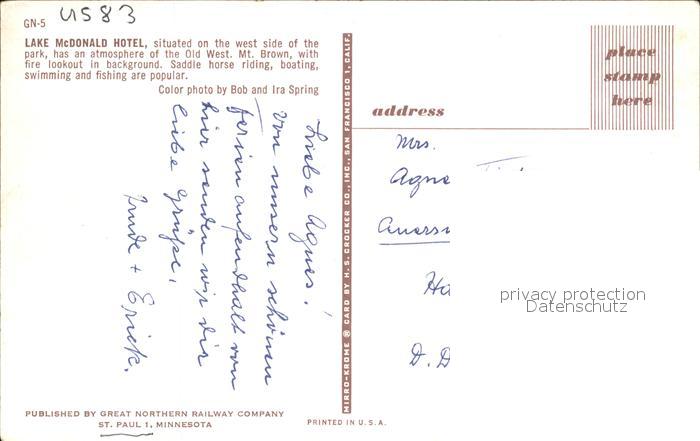 US83
GN-5
LAKE McDONALD HOTEL, situated on the west side of the
park, has an atmosphere of the Old West. Mt. Brown, with
fire lookout in background. Saddle horse riding, boating,
swimming and fishing are popular.
Color photo by Bob and Ira Spring
Liebe Agnes!
Von unsern schönen
Ferien aufendhalt von
hier senden wir dir
liebe Grüße.
Trude + Erick.
PUBLISHED BY GREAT NORTHERN RAILWAY COMPANY
ST. PAUL 1, MINNESOTA
MIRRO-KROME ® CARD BY H. S. CROCKER CO., INC., SAN FRANCISCO 1, CALIF.
PRINTED IN U.S.A.
place
stamp
here
address
Mrs.
Agne
Ha
D.D
privacy protection
Datenschutz